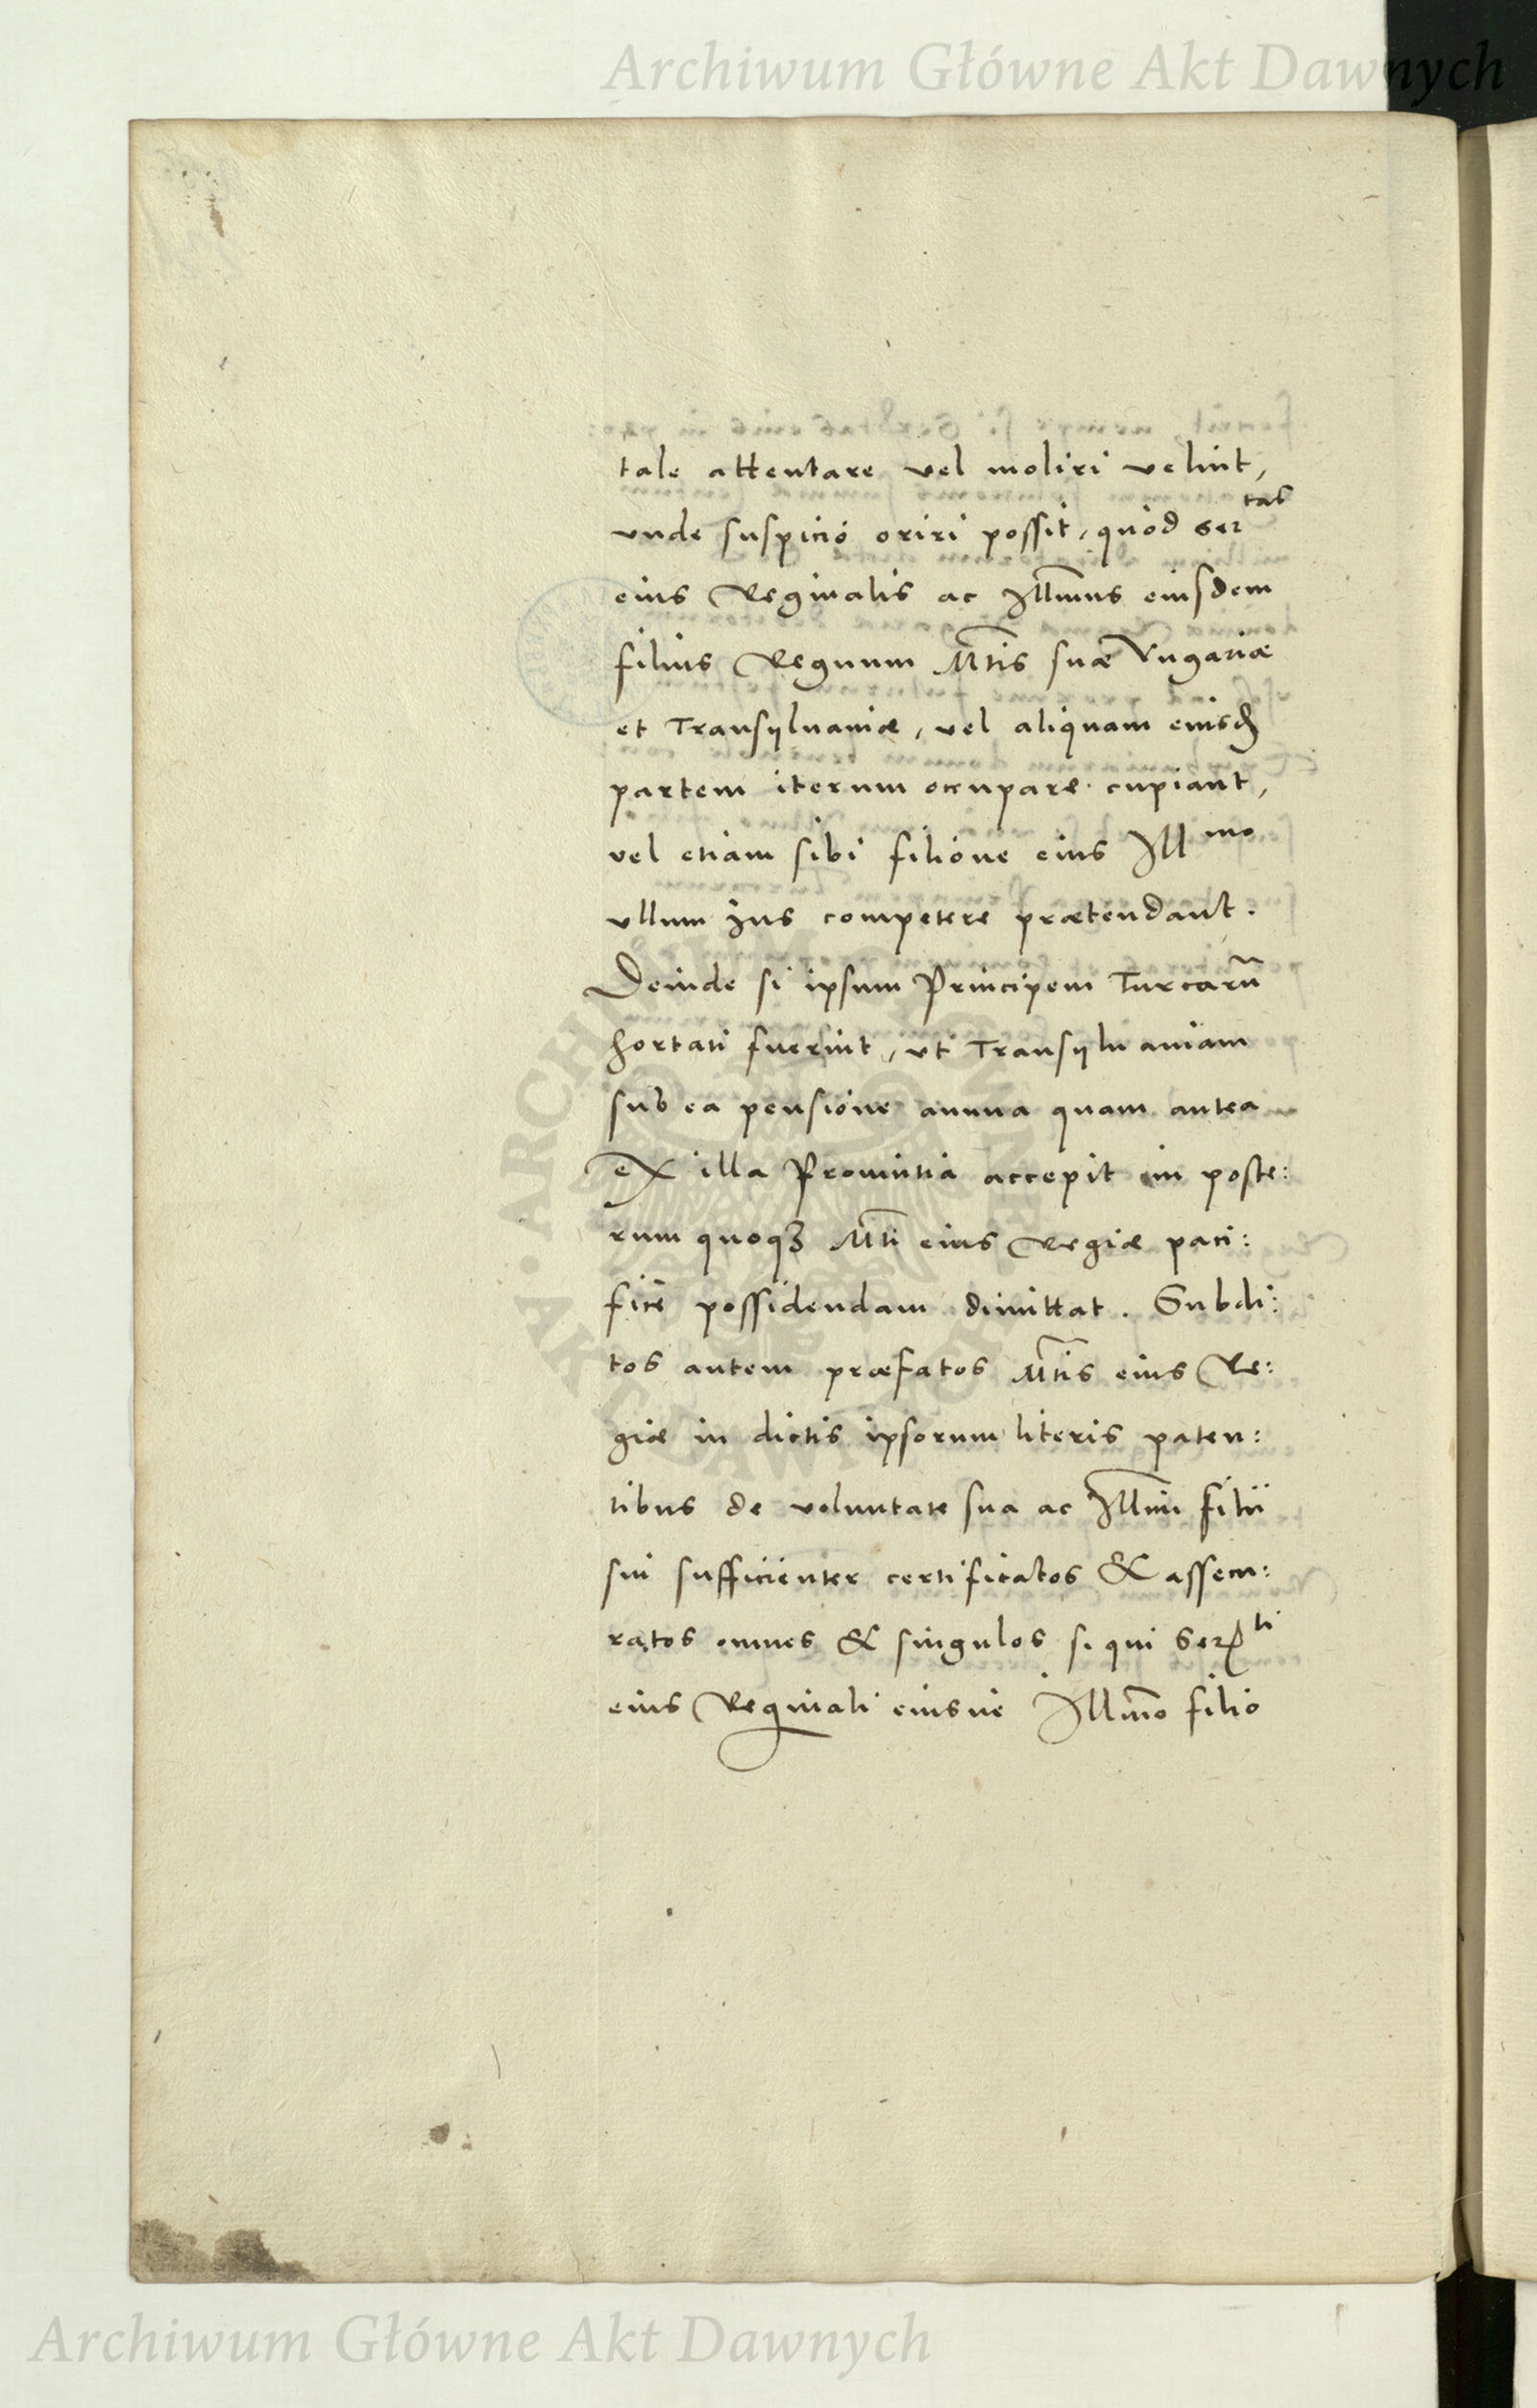 Archiwum Główne Akt Dawnych
tale attentare vel moliri velint,
vnde suspicio oriri possit, quod Ser^tas
eius Reginalis ac Illmus eiusdem
filius Regnum Mtis suæ Vngariæ
et Transyluaniæ, vel aliquam eiusd
partem iterum occupare cupiant,
vel etiam sibi filione eius Ill^mo
vllum Jus competere prætendant.
Deinde si ipsum Principem Turcarū
hortati fuerint, vt Transyluaniam
sub ea pensione annua quam antea
ex illa Prouintia accepit in poste:
rum quoqȝ Mti eius Regiæ paci:
ficè possidendam dimittat. Subdi:
tos autem præfatos Mtis eius Re:
giæ in dictis ipsorum literis paten:
tibus de voluntate sua ac Illmi filii
sui sufficienter certificatos & assecu:
ratos omnes & singulos si qui Ser^ti
eius Reginali eiusue Illmo filio
Archiwum Główne Akt Dawnych